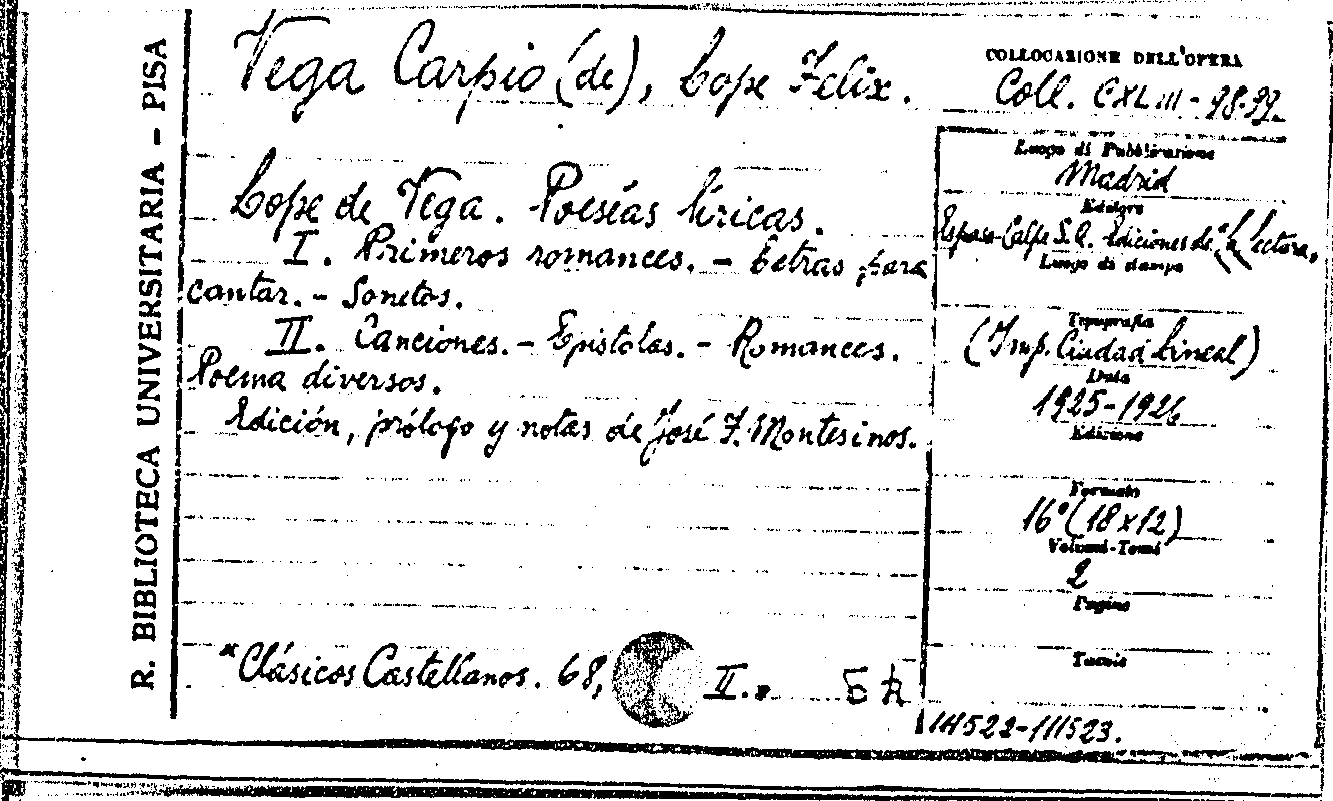 R. BIBLIOTECA UNIVERSITARIA - PISA
Vega Carpio (de), Lope Felix.
Lope de Vega. Poesías líricas.
I. Primeros romances. - Letras para
cantar. - Sonetos.
II. Canciones. - Epistolas. - Romances.
Poema diversos.
Edición, prólogo y notas de José F. Montesinos.
"Clásicos Castellanos. 68, II."
COLLOCAZIONE DELL'OPERA
Coll. CXLIII - 98-99.
Luogo di Pubblicazione
Madrid
Editore
Espasa-Calpe S.A. Ediciones de "La Lectura,,
Luogo di stampa
Tipografia
(Imp. Ciudad Lineal)
Data
1925-1926
Edizione
Formato
16° (18x12)
Volumi-Tomi
2
Pagine
Tavole
111522-111523.